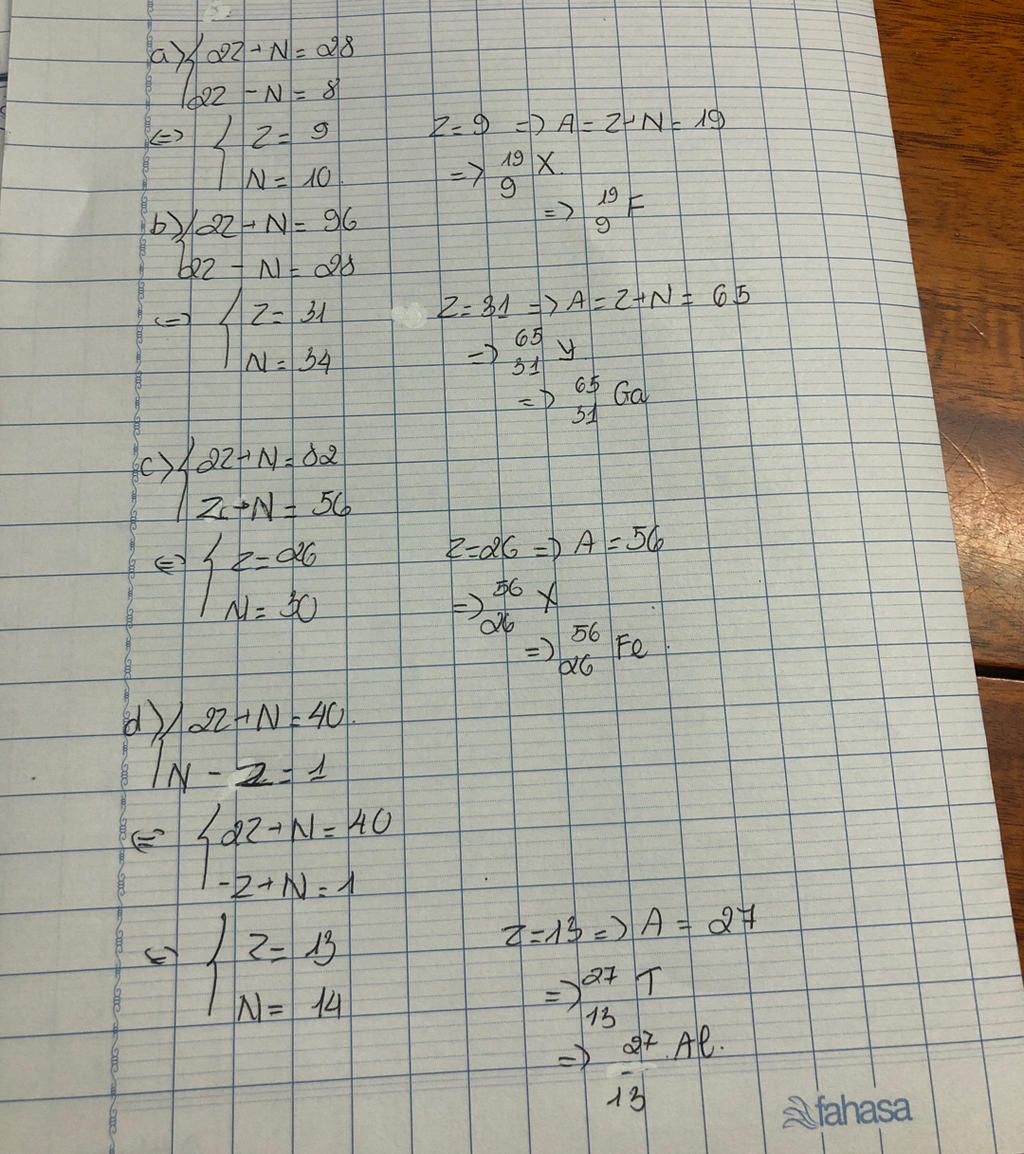 a) { 2Z + N = 28
2Z - N = 8
<=> { Z = 9
N = 10
Z = 9 => A = Z + N = 19
=> 19 9 X.
=> 19 9 F
b) { 2Z + N = 96
2Z - N = 28
<=> { Z = 31
N = 34
Z = 31 => A = Z + N = 65
=> 65 31 Y
=> 65 31 Ga
c) { 2Z + N = 82
Z + N = 56
<=> { Z = 26
N = 30
Z = 26 => A = 56
=> 56 26 X
=> 56 26 Fe.
d) { 2Z + N = 40.
N - Z = 1
<=> { 2Z + N = 40
-Z + N = 1
<=> { Z = 13
N = 14
Z = 13 => A = 27
=> 27 13 T
=> 27 13 Al.
fahasa